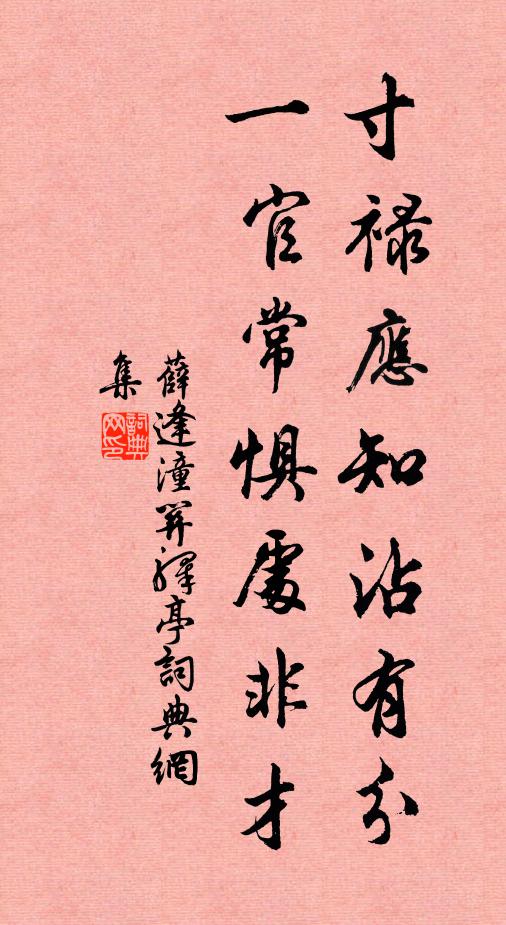 寸祿應知沾有分
一官常懼處非才
薛逢潼關驛亭詞典網
集
詞典網印